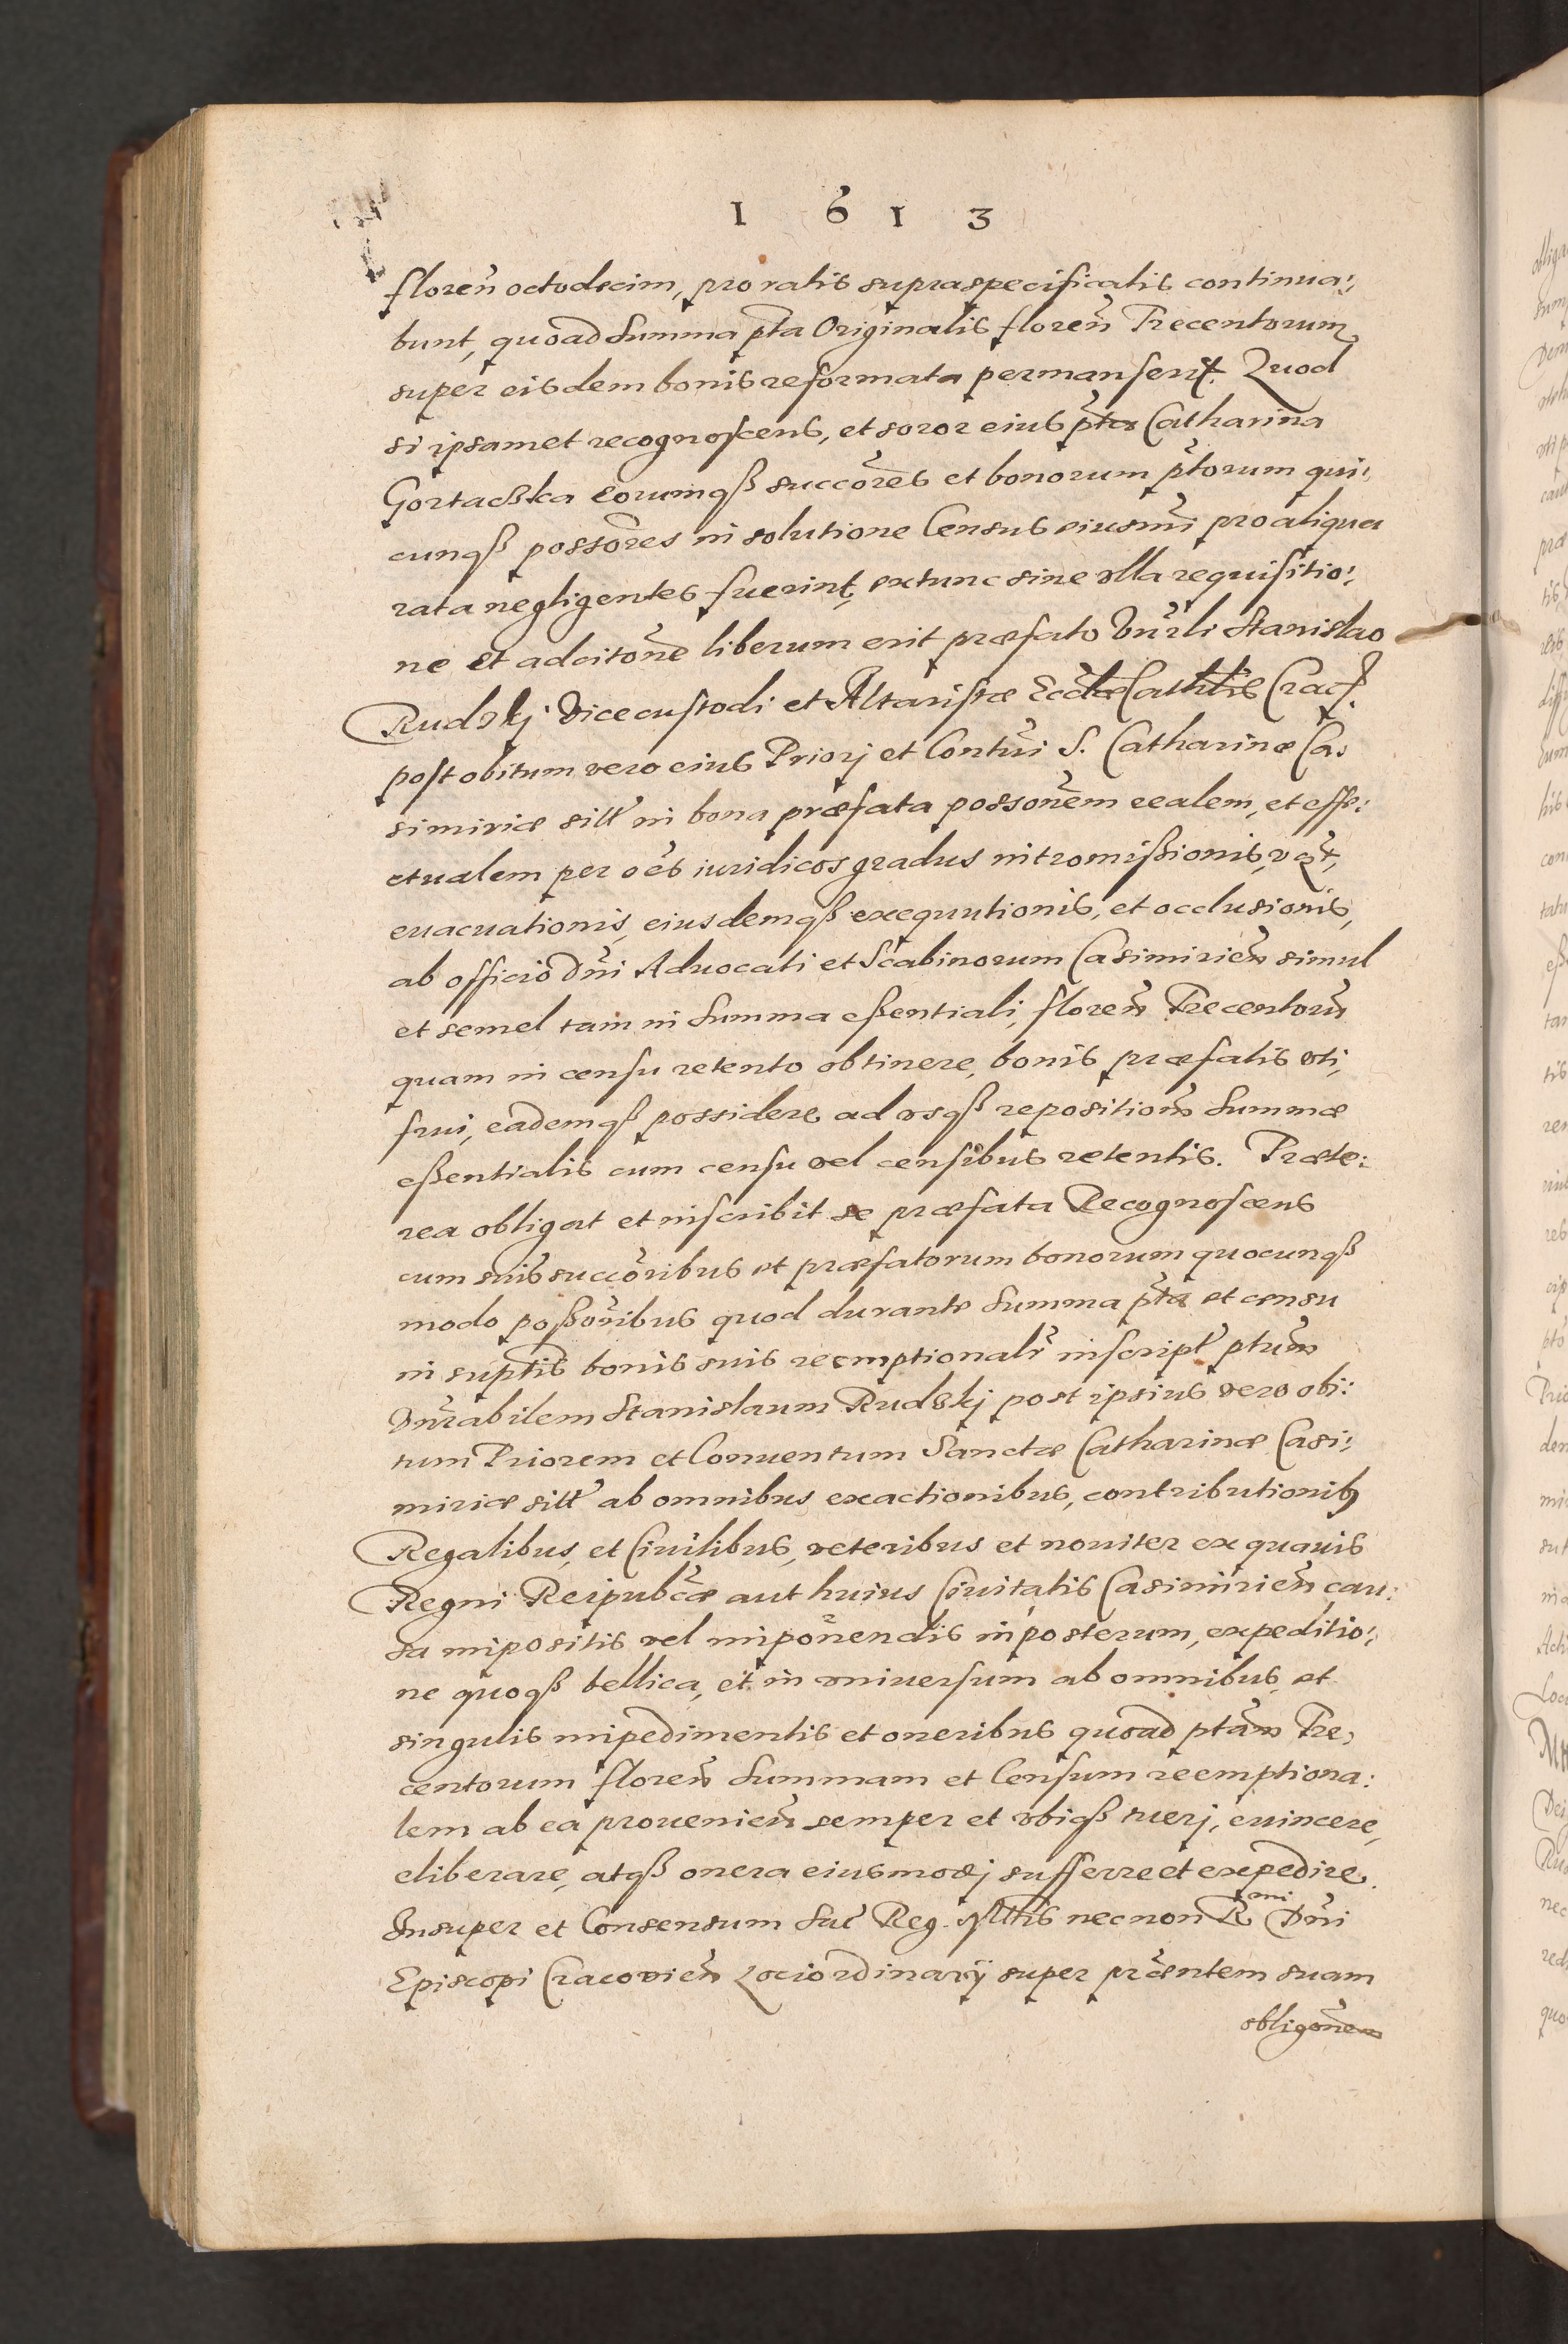 1 6 1 3
floren̄ octodecim, pro ratis supraspecificatis continua:
bunt, quoad Summa pta Originalis floren̄ Trecentorum
super eisdem bonis reformata permanserit. Quod
si ipsamet recognoscens, et soror eius pta Catharina
Gortacßka eorumqß succores et bonorum ptorum qui:
cunqß possores in solutione Census eiusmi pro aliqua
rata negligentes fuerint, extunc sine ulla requisitio:
ne et adcitone liberum erit præfato Vnrli Stanislao
Rudskj Vicecustodi et Altaristæ Eccliæ Cathlis Crac.
post obitum vero eius Priorj et Contui S. Catharinæ Ca:
simiriæ sitt in bona præfata possonem realem, et effe:
ctualem per oes iuridicos gradus intromißionis, vqt,
euacuationis, eiusdemqß exequutionis, et occlusionis,
ab officio Dni Aduocati et Scabinorum Casimirien̄ simul
et semel tam in Summa eßentiali, floren̄ Trecentorū
quam in censu retento obtinere, bonis præfatis vti,
frui, eademqß possidere ad vsqß repositionē Summæ
eßentialis cum censu vel censibus retentis. Præte:
rea obligat et inscribit se præfata Recognoscens
cum suis succoribus et præfatorum bonorum quocunqß
modo poßoribus quod durante Summa pta et censu
in suptis bonis suis reemptionalr inscript ptum
Vnrabilem Stanislaum Rudskj post ipsius vero obi:
tum Priorem et Conuentum Sanctæ Catharinæ Casi:
miriæ sitt ab omnibus exactionibus, contributionibꝰ
Regalibus, et Ciuilibus, veteribus et nouiter ex quauis
Regni Reipublcæ aut huius Ciuitatis Casimirien̄ cau:
sa impositis vel imponendis in posterum, expeditio:
ne quoqß bellica, et in vniuersum ab omnibus et
singulis impedimentis et oneribus quoad ptam Tre:
centorum floren̄ Summam et Censum reemptiona:
lem ab ea prouenien̄ semper et vbiqß tuerj, euincere,
eliberare, atqß onera eiusmodj sufferre et expedire.
Insuper et Consensum Sac Reg. Mttis necnon Rmi Dni
Episcopi Cracouien̄ Lociordinarij super præntem suam
obligonem